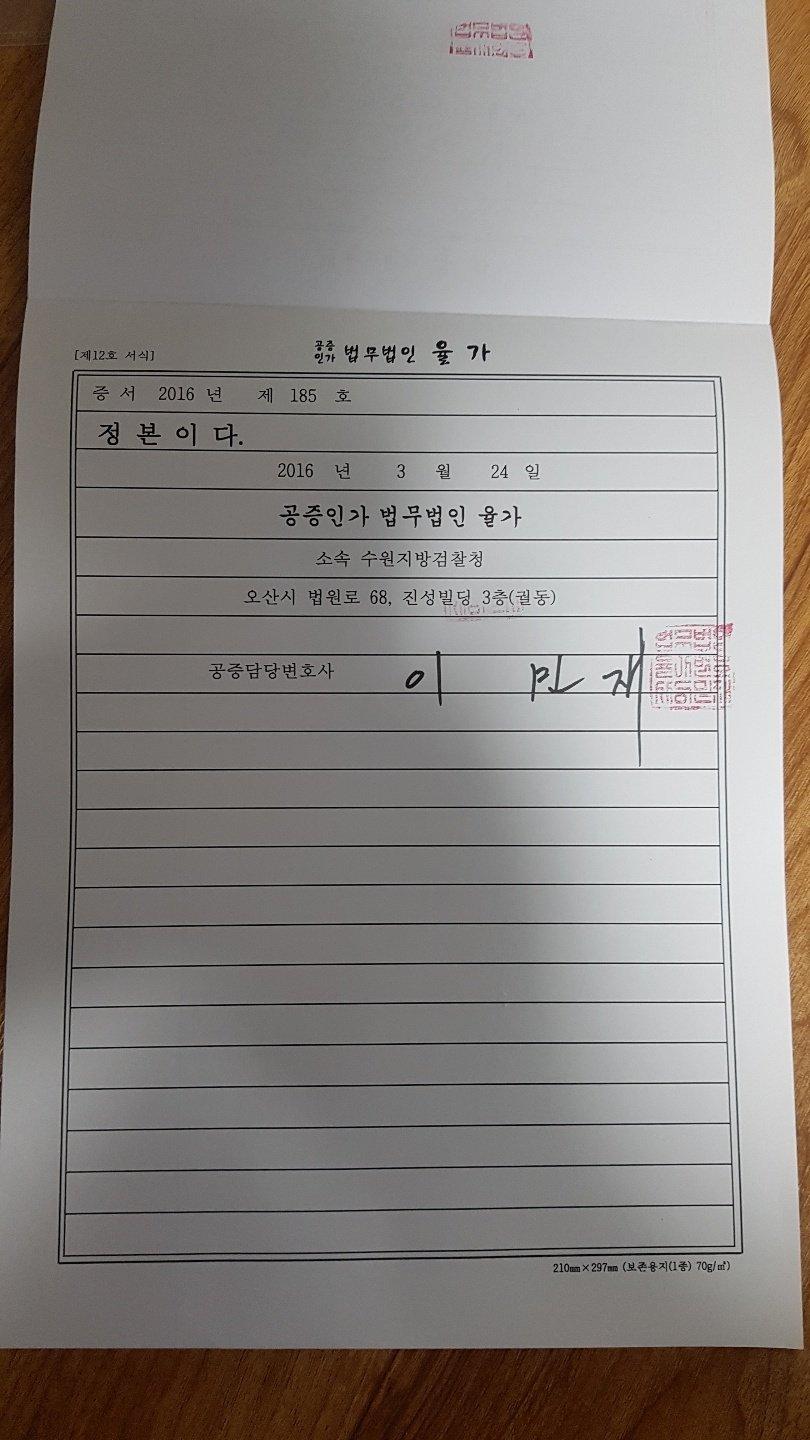 [제12호 서식]
공증인가 법무법인 율가
증서 2016 년 제 185 호
정본이다.
2016 년 3 월 24 일
공증인가 법무법인 율가
소속 수원지방검찰청
오산시 법원로 68, 진성빌딩 3층(궐동)
공증담당변호사 이 만 재
210㎜×297㎜ (보존용지(1종) 70g/㎡)